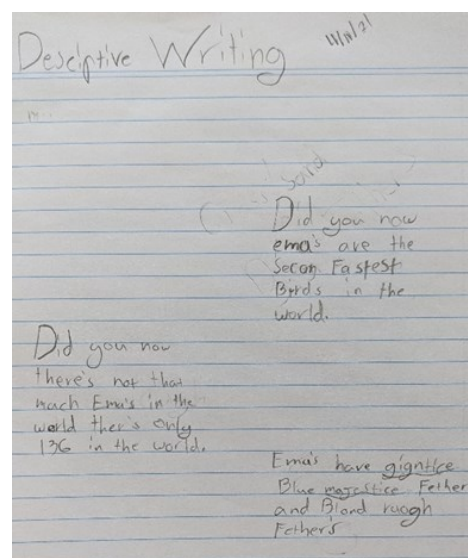 Desciptive Writing
Did you now
ema's are the
Secon Fastest
Birds in the
world.
Did you now
there's not that
much Ema's in the
world ther's only
136 in the world.
Ema's have gigntice
Blue majestice Fether
and Blond ruogh
Fether's